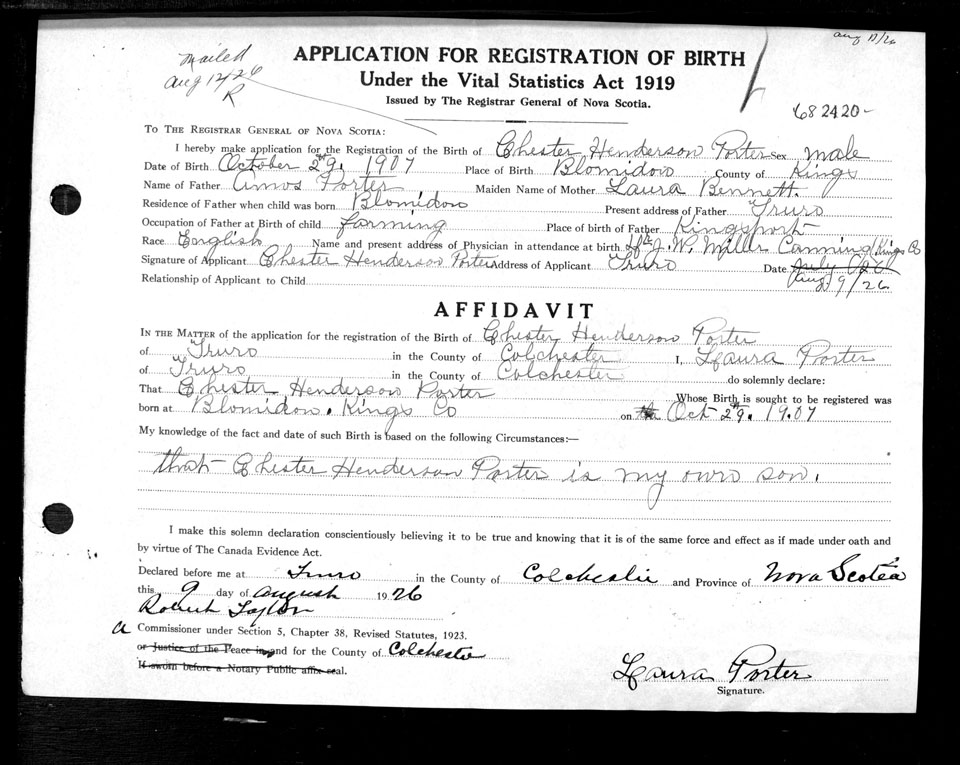 aug 12/26
mailed
aug 12/26
R
APPLICATION FOR REGISTRATION OF BIRTH
Under the Vital Statistics Act 1919
Issued by The Registrar General of Nova Scotia.
682420-
TO THE REGISTRAR GENERAL OF NOVA SCOTIA:
I hereby make application for the Registration of the Birth of Chester Henderson Porter Sex male
Date of Birth October 29th. 1907 Place of Birth Blomidon County of Kings
Name of Father Amos Porter Maiden Name of Mother Laura Bennett.
Residence of Father when child was born Blomidon Present address of Father Truro
Occupation of Father at Birth of child farming Place of birth of Father Kingsport
Race English Name and present address of Physician in attendance at birth J. W. Miller Canning Kings Co
Signature of Applicant Chester Henderson Porter Address of Applicant Truro Date July
Aug 9/26
Relationship of Applicant to Child
AFFIDAVIT
IN THE MATTER of the application for the registration of the Birth of Chester Henderson Porter
of Truro in the County of Colchester I, Laura Porter
of Truro in the County of Colchester do solemnly declare:
That Chester Henderson Porter Whose Birth is sought to be registered was
born at Blomidon. Kings Co on the Oct 29th. 1907
My knowledge of the fact and date of such Birth is based on the following Circumstances:—
that Chester Henderson Porter is my own son.
I make this solemn declaration conscientiously believing it to be true and knowing that it is of the same force and effect as if made under oath and
by virtue of The Canada Evidence Act.
Declared before me at Truro in the County of Colchester and Province of Nova Scotia
this 9 day of August 1926
Robert Taylor
a Commissioner under Section 5, Chapter 38, Revised Statutes, 1923.
or Justice of the Peace in and for the County of Colchester
If sworn before a Notary Public affix seal.
Laura Porter
Signature.